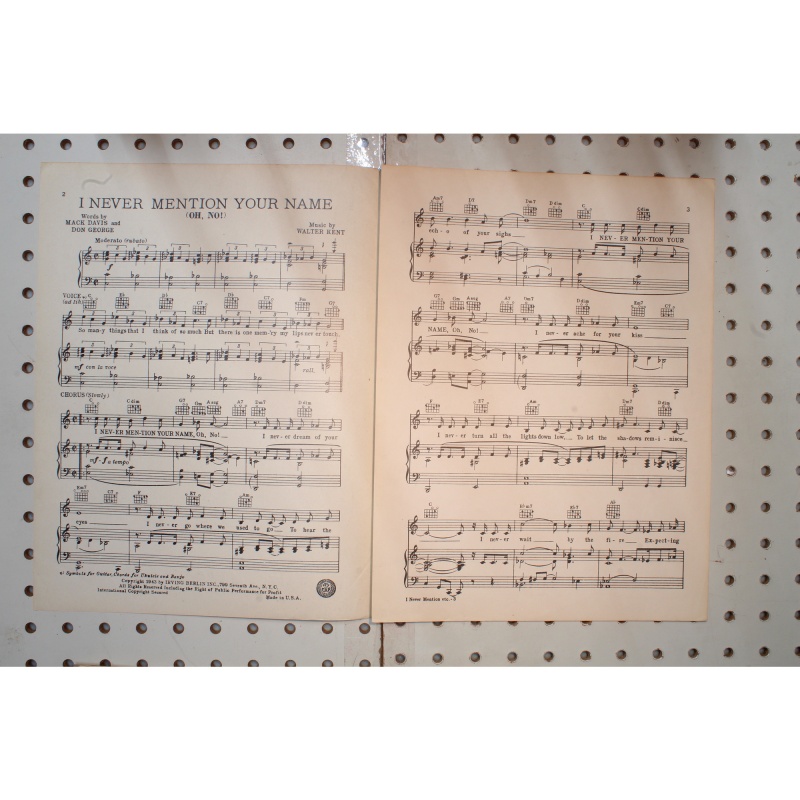 2
I NEVER MENTION YOUR NAME
(OH, NO!)
Words by
MACK DAVIS and
DON GEORGE
Music by
WALTER KENT
Moderato (rubato)
VOICE
So man-y things that I think of so much But there is one mem'ry my lips never touch,
mf con la voce
rall.
CHORUS (Slowly)
I NEV-ER MEN-TION YOUR NAME, Oh, No! I nev-er dream of your
mf-f a tempo
eyes I nev-er go where we used to go To hear the
Symbols for Guitar, Chords for Ukulele and Banjo
Copyright 1943 by IRVING BERLIN INC., 799 Seventh Ave., N.Y.C.
All Rights Reserved Including the Right of Public Performance for Profit
International Copyright Secured
Made in U.S.A.
3
ech-o of your sighs I NEV-ER MEN-TION YOUR
NAME, Oh, No! I nev-er ache for your kiss
I nev-er turn all the lights down low, To let the sha-dows rem-i-nisce
I nev-er wait by the fi-re Ex-pect-ing
I Never Mention etc.-3